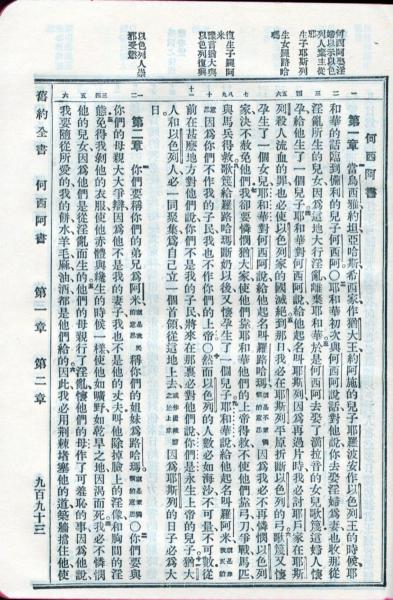 何西阿娶淫
婦以示以色
列人棄主從
邪
生子耶斯列
生女羅路哈
瑪
復生子羅阿
米
豫言猶大與
以色列復興
以色列人崇
邪受懲
何西阿書
第一章 當烏西雅約坦亞哈斯希西家作猶大王約阿施的兒子耶羅波安作以色列王的時候耶
和華的話臨到備利的兒子何西阿〇耶和華初次與何西阿說話對他說你去娶淫婦為妻也收那從
淫亂所生的兒女因為這地大行淫亂離棄耶和華於是何西阿去娶了滴拉音的女兒歌篾這婦人懷
孕給他生了一個兒子耶和華對何西阿說給他起名叫耶斯列因為再過片時我必討耶戶家在耶斯
列殺人流血的罪也必使以色列家的國滅絕到那日我必在耶斯列平原折斷以色列的弓歌篾又懷
孕生了一個女兒耶和華對何西阿說給他起名叫羅路哈瑪就是不蒙憐憫的意思因為我必不再憐憫以色列
家決不赦免他們我卻要憐憫猶大家使他們靠耶和華他們的上帝得救不使他們靠弓刀爭戰馬匹
與馬兵得救歌篾給羅路哈瑪斷奶以後又懷孕生了一個兒子耶和華說給他起名羅阿米就是非我民的意思
因為你們不作我的子民我也不作你們的上帝〇然而以色列的人數必如海沙不可量不可數從
前在甚麼地方對他們說你們不是我的子民將來在那裏必對他們說你們是永生上帝的兒子猶大
人和以色列人必一同聚集為自己立一個首領從這地上去因為耶斯列的日子必為大
第二章 你們要稱你們的弟兄為阿米就是我民的意思稱你們的姐妹為路哈瑪就是蒙憐憫的意思〇你們要與
你們的母親大大爭辯因為他不是我的妻子我也不是他的丈夫叫他除掉臉上的淫像和胸間的淫
態免得我剝他的衣服使他赤體與纔生的時候一樣使他如曠野如乾旱之地因渴而死我必不憐憫
他的兒女因為他們是從淫亂而生的他們的母親行了淫亂懷他們的母作了可羞恥的事因為他說
我要隨從所愛的我的餅水羊毛麻油酒都是他們給的因此我必用荊棘堵塞他的道築牆擋住他使
舊約全書 何西阿書 第一章 第二章 九百九十三